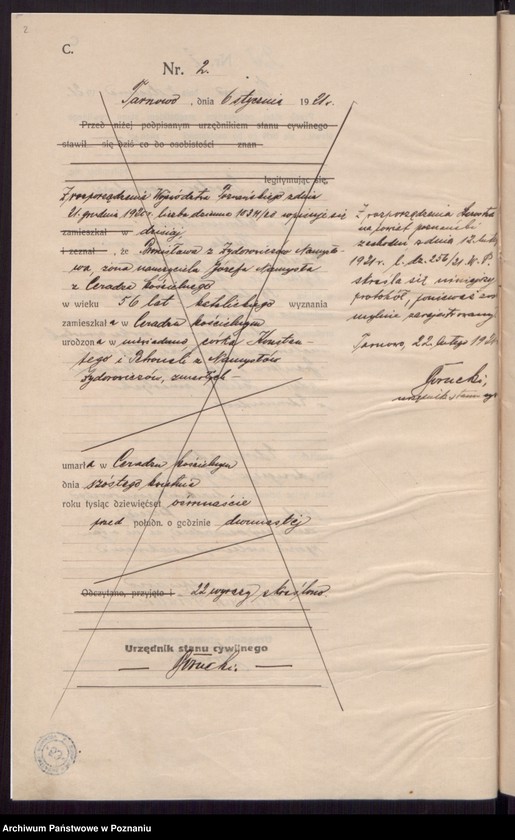 2
C.
Nr. 2.
Tarnowo, dnia 6 stycznia 1921 r.
Przed niżej podpisanym urzędnikiem stanu cywilnego
stawił się dziś co do osobistości znan
legitymując się,
Z rozporządzenia Województwa Poznańskiego z dnia
21. grudnia 1920 r. liczba dziennika wpisuje się
zamieszkał w dzisiaj
i zeznał, że Bronisława z
żona nauczyciela Józefa Namysła
z Ceradza kościelnego
w wieku 56 lat katolickiego wyznania
zamieszkała w Ceradzu kościelnym
urodzona w córka Konstan-
tego i Petroneli z Namysłów
zmarłych
umarła w Ceradzu kościelnym
dnia szóstego
roku tysiąc dziewięćset ośmnaście
przed połudn. o godzinie dwunastej
Odczytano, przyjęto i 22 wyrazy skréślono.
Urzędnik stanu cywilnego
Górucki.
Z rozporządzenia Starostwa
na powiat poznański
zachodni z dnia 12. lutego
1921 r. l. dz. 256/21. W. P.
skreśla się niniejszy
protokół, ponieważ zo-
mylnie zarejestrowany.
Tarnowo, 22. lutego 1921
Górucki,
urzędnik stanu cyw.
Archiwum Państwowe w Poznaniu